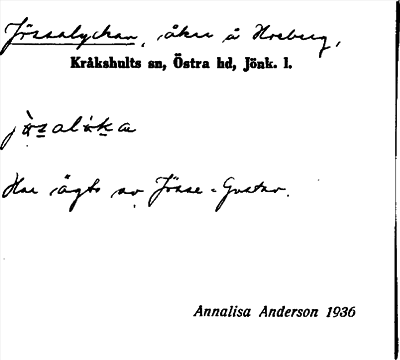 Jössalyckan, åker å Horberg,
Kråkshults sn, Östra hd, Jönk. l.
jösalika
Har ägts av Jösse-Gustav.
Annalisa Anderson 1936